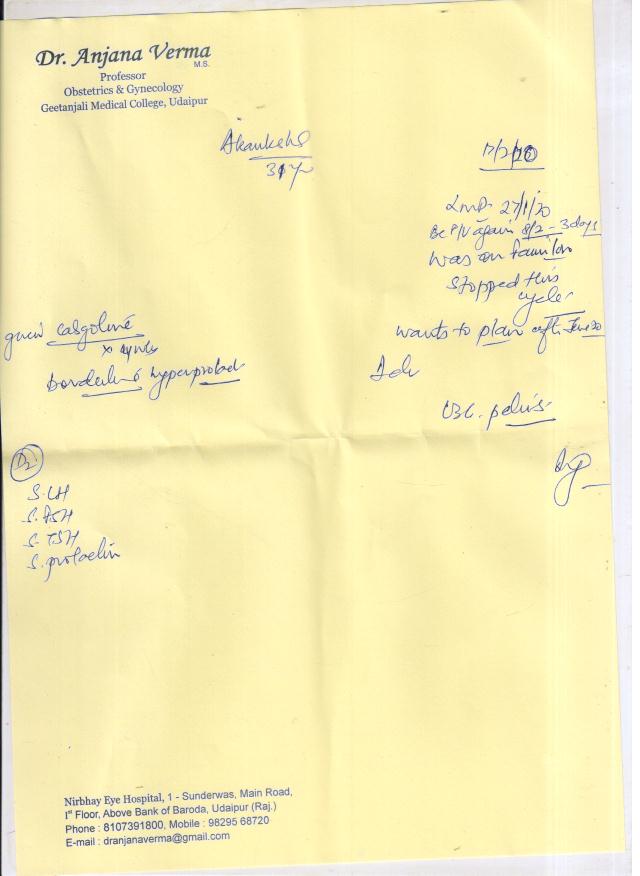 Dr. Anjana Verma
M.S.
Professor
Obstetrics & Gynecology
Geetanjali Medical College, Udaipur
Akanksha
31y
LMP 27/1/20
P/V again 8/2 - 3 days
was on
stopped this
cycle
wants to plan after
given
borderline hyperprolact
Adv
pelvis
S. LH
S. FSH
S. TSH
S. prolactin
Nirbhay Eye Hospital, 1 - Sunderwas, Main Road,
Ist Floor, Above Bank of Baroda, Udaipur (Raj.)
Phone : 8107391800, Mobile : 98295 68720
E-mail : dranjanaverma@gmail.com